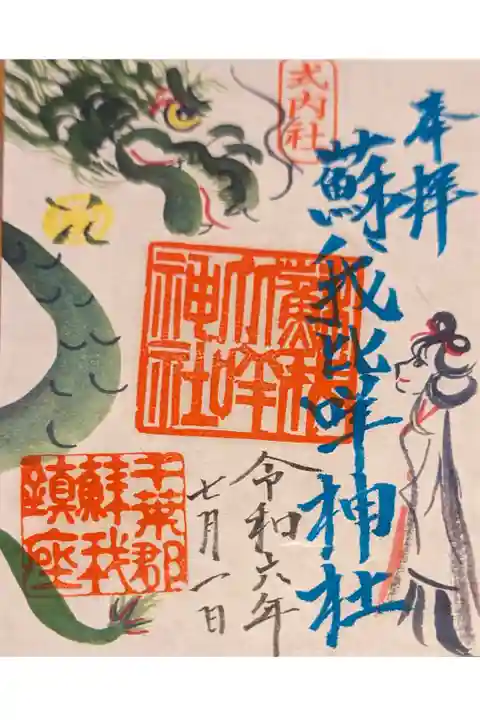 奉拝
蘇我比咩神社
式内社
蘇我
比咩
神社
令和六年
七月一日
千葉郡
蘇我
鎮座